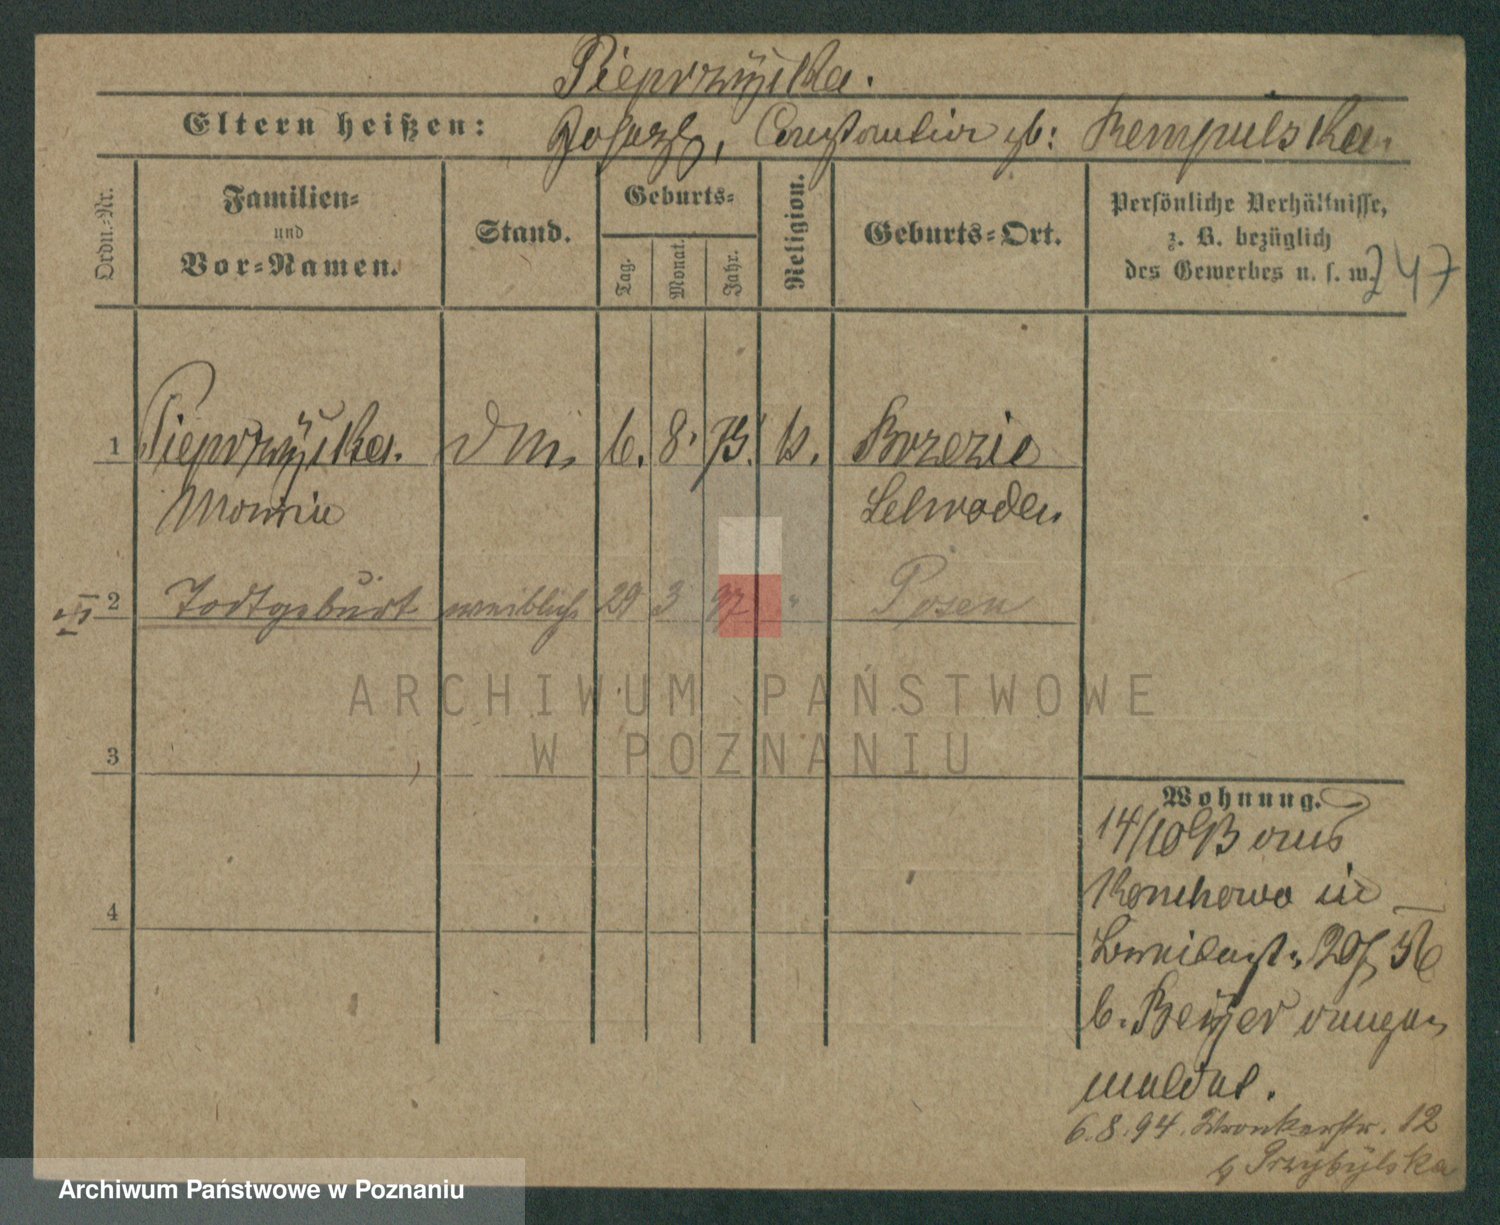 Pieprzÿcka.
Eltern heißen: Joseph, Constantia gb: Kempulska.
Ordn.-Nr.
Familien-
und
Vor-Namen.
Stand.
Geburts-
Tag.
Monat.
Jahr.
Religion.
Geburts-Ort.
Persönliche Verhältnisse,
z. B. bezüglich
des Gewerbes u. s. w.
247
1 Pieprzÿcka. 6. 8. 73. k. Brzezie
Marie
2 Todtgeburt weiblich 29 3 97 " Posen
3
4
Wohnung.
14/10 93 aus
in
b. Beÿer ange
meldet.
6.8.94. Wronkerstr. 12
b Przybÿlska
ARCHIWUM PAŃSTWOWE
W POZNANIU
Archiwum Państwowe w Poznaniu